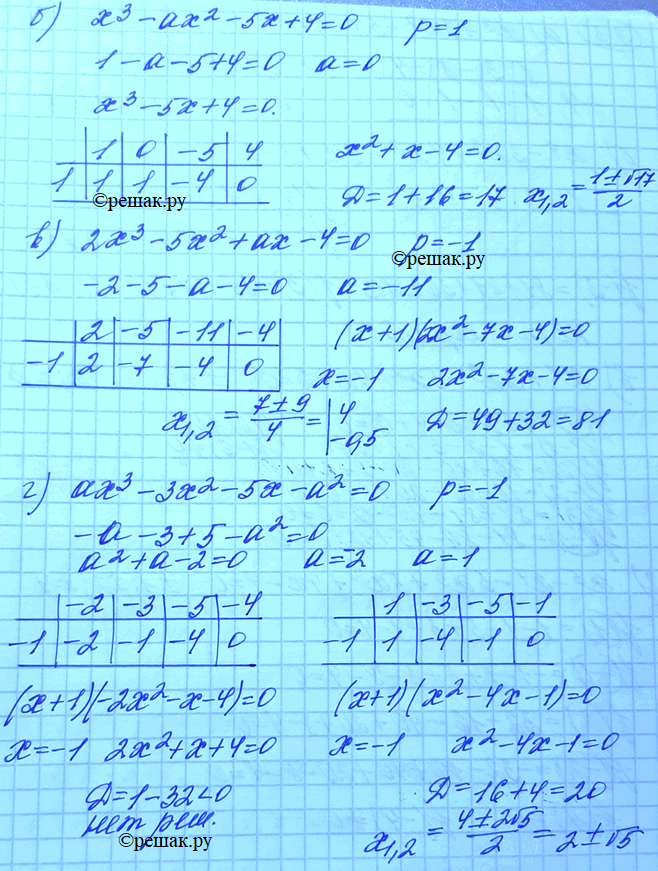 б) x³ - ax² - 5x + 4 = 0 p = 1
1 - a - 5 + 4 = 0 a = 0
x³ - 5x + 4 = 0.
1 0 -5 4 x² + x - 4 = 0.
1 1 1 -4 0 Д = 1 + 16 = 17 x₁,₂ = (1 ± √17)/2
©решак.ру
в) 2x³ - 5x² + ax - 4 = 0 p = -1
©решак.ру
-2 - 5 - a - 4 = 0 a = -11
2 -5 -11 -4 (x + 1)(2x² - 7x - 4) = 0
-1 2 -7 -4 0 x = -1 2x² - 7x - 4 = 0
x₁,₂ = (7 ± 9)/4 = | 4 -0,5 Д = 49 + 32 = 81
г) ax³ - 3x² - 5x - a² = 0 p = -1
-a - 3 + 5 - a² = 0
a² + a - 2 = 0 a = -2 a = 1
-2 -3 -5 -4 1 -3 -5 -1
-1 -2 -1 -4 0 -1 1 -4 -1 0
(x + 1)(-2x² - x - 4) = 0 (x + 1)(x² - 4x - 1) = 0
x = -1 2x² + x + 4 = 0 x = -1 x² - 4x - 1 = 0
Д = 1 - 32 < 0 Д = 16 + 4 = 20
нет реш. x₁,₂ = (4 ± 2√5)/2 = 2 ± √5
©решак.ру